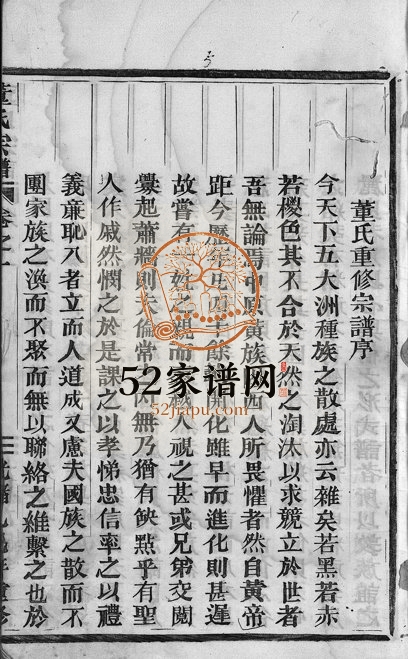 董氏重修宗譜序
今天下五大洲種族之散處亦云雜矣若黑若赤
若椶色其不合於天然之淘汰以求競立於世者
吾無論焉中原黃族西人所畏懼者然自黃帝
距今歷年四千餘開化雖早而進化則甚遲
故嘗有視而人視之甚或兄弟交鬩
釁起蕭牆則夫倫常內無乃猶有缺點乎有聖
人作戚然憫之於是課之以孝悌忠信率之以禮
義亷恥八者立而人道成又慮夫國族之散而不
團家族之渙而不聚而無以聯絡之維繫之也於
董氏宗譜 卷之一
52家谱网
52jiapu.com